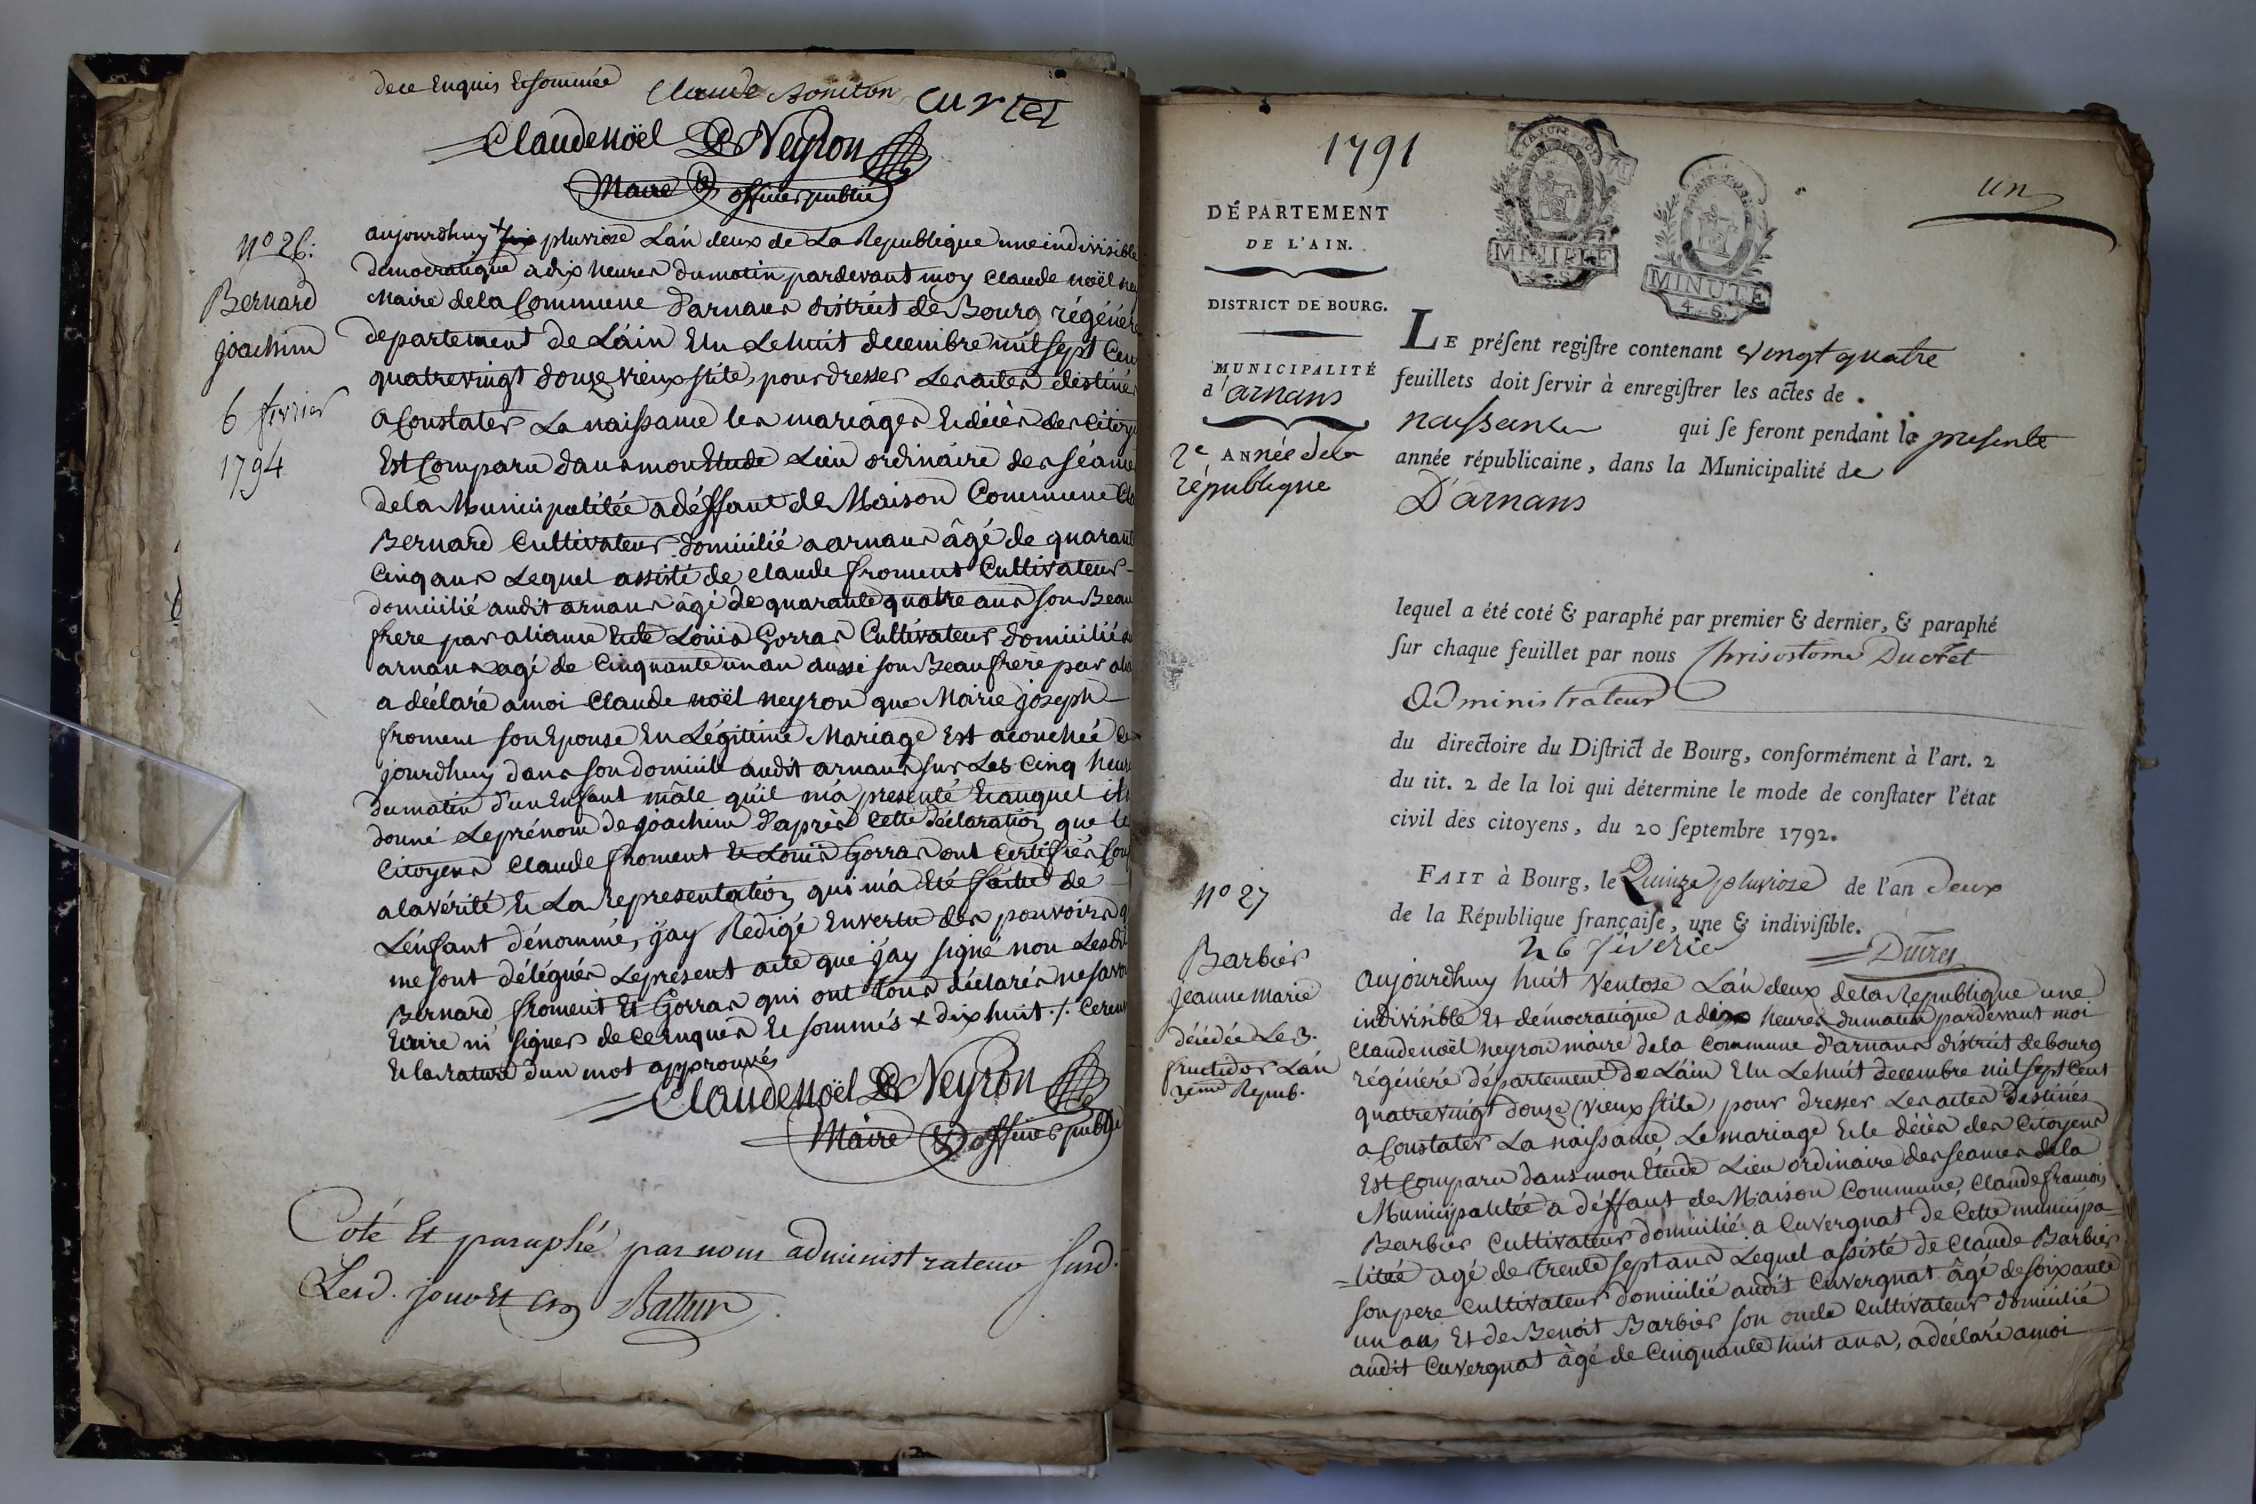 dece Enquis Et sommée Claude Boniton Curtet
Claude noël De Neyron
Maire & officier public
N° 26:
Bernard
joachim
6 fevrier
1794
aujourdhuy + pluviose L'an deux de La Republique une indivisible
démocratique a dix heures du matin pardevant moy Claude noël ney
Maire de la Commune d'arnans district de Bourg régénéré
departement de L'ain Elu Le huit decembre mil sept Cent
quatrevingt douze vieux stile, pour dresser Les actes destinés
a Constater La naissance les mariages Et décès des Citoy
Est Comparu dans mon Etude Lieu ordinaire des séances
de la Municipalitée a déffaut de Maison Commune
Bernard Cultivateur domicilié a arnans âgé de quarante
Cinq ans Lequel assisté de Claude froment Cultivateur
domicilié audit arnans âgé de quarante quatre ans son Beau
frere par aliance Et de Loüis Gorras Cultivateur domicilié a
arnans agé de Cinquante un an aussi son Beaufrere par alia
a déclaré a moi Claude noël neyron que Marie joseph
froment son Epouse En Légitime Mariage Est acouchée ce
jourdhuy dans son domicile audit arnans sur Les Cinq heures
du matin d'un Enfant mâle qu'il m'a presenté Et auquel il
donné Le prénom de joachim d'après Cette déclaration que les
Citoyens Claude froment Et Louis Gorras ont Certifiés Conf
a la vérité Et La Representation qui m'a Eté faitte de
L'enfant dénommé, j'ay Redigé En vertu des pouvoirs q
me sont délégués Le present acte que j'ay signé non Lesdi
Bernard froment Et Gorras qui ont tous déclarés ne savoir
Ecrire ni signer de ce Enquis Et sommés + dix huit ./. ce renv
Et la rature d'un mot approuvés
Claude noël De Neyron
Maire & officier public
Coté Et paraphé par nous administrateur susd.
Lesd. jour Et an
1791
un
MINUTE
MINUTE
4. S.
DÉPARTEMENT
DE L'AIN.
DISTRICT DE BOURG.
MUNICIPALITÉ
d'arnans
2e ANnée de la
république
LE préſent regiſtre contenant vingt quatre
feuillets doit ſervir à enregiſtrer les actes de
naissance qui ſe feront pendant la presente
année républicaine, dans la Municipalité de
D'arnans
lequel a été coté & paraphé par premier & dernier, & paraphé
ſur chaque feuillet par nous Chrisostôme Ducret
administrateur
du directoire du Diſtrict de Bourg, conformément à l'art. 2
du tit. 2 de la loi qui détermine le mode de conſtater l'état
civil des citoyens, du 20 ſeptembre 1792.
FAIT à Bourg, le Quinze pluviose de l'an deux
de la République françaiſe, une & indiviſible.
26 féverie
Ducret
N° 27
Barbier
jeanne marie
décédée Le 3.
fructidor L'an
3eme Repub.
aujourdhuy huit Ventose L'an deux de la Republique une
indivisible Et démocratique a dix heures du matin pardevant moi
Claude noël neyron maire de la Commune d'arnans district de bourg
régénéré département de L'ain Elu Le huit decembre mil sept Cent
quatrevingt douze (vieux stile) pour dresser Les actes destinés
a Constater La naissance Le mariage Et le décès des Citoyens
Est Comparu dans mon Etude Lieu ordinaire des séances de la
Municipalitée a déffaut de Maison Commune, Claude françois
Barbier Cultivateur domicilié a Cuvergnat de Cette municipa-
-litée agé de trente sept ans Lequel assisté de Claude Barbier
son pere Cultivateur domicilié audit Cuvergnat âgé de soixante
un ans Et de Benoit Barbier son oncle Cultivateur domicilié
audit Cuvergnat âgé de Cinquante huit ans, a déclaré a moi